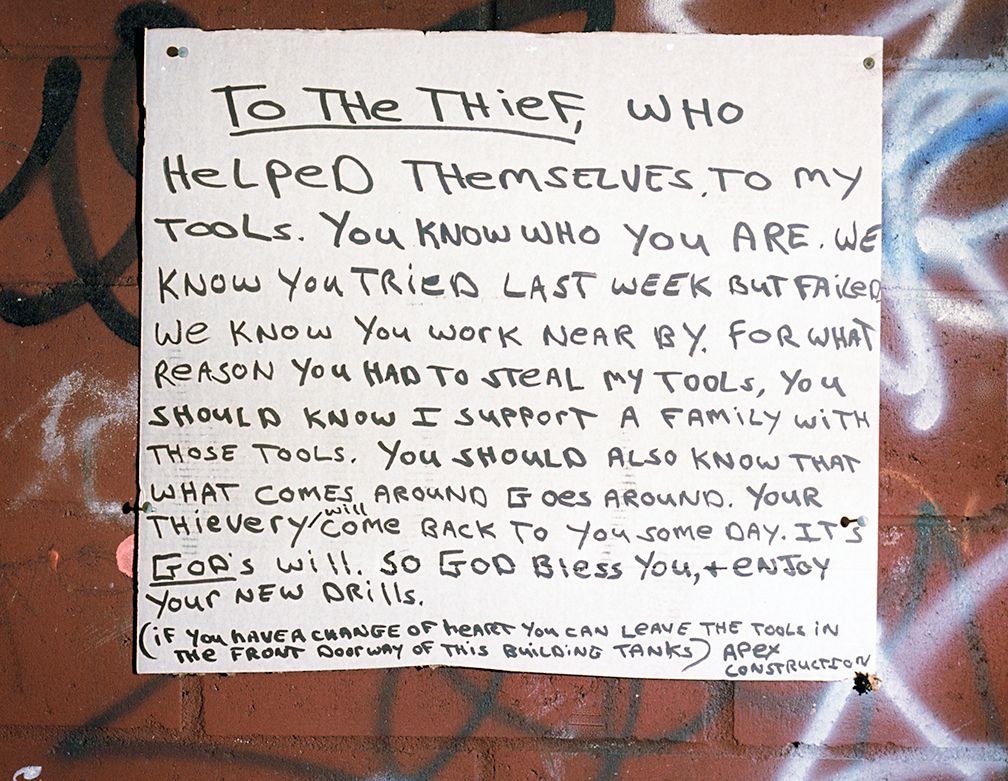 To THe THieF, WHO
HeLPeD THemSELVES, TO my
TOOLs. You KNOW WHO You ARE. WE
KNOW You TRieD LAST WEEK BuT FAiLeD
We KNOW You WORK NeAR BY. FOR WHAT
ReASON You HAD TO STeAL My TOOLs, You
SHOuLD KNOW I SuPPOrT A FAMiLY WiTH
THOSE TOOLS. You SHOuLD ALSO KNOW THAT
WHAT COMES AROUND GOes AROUND. YOuR
THievery/will COMe BACK TO You Some DAY. IT's
GOD's will. SO GOD Bless You, + eNJOY
Your NEW DRills.
(iF You HAVE A CHANGE OF HeArT You CAN LeAVE THE TOOLS iN
THE FRONT DOORWAY OF THiS BuiLDiNG TANKS) APeX
CONSTRuCTiON